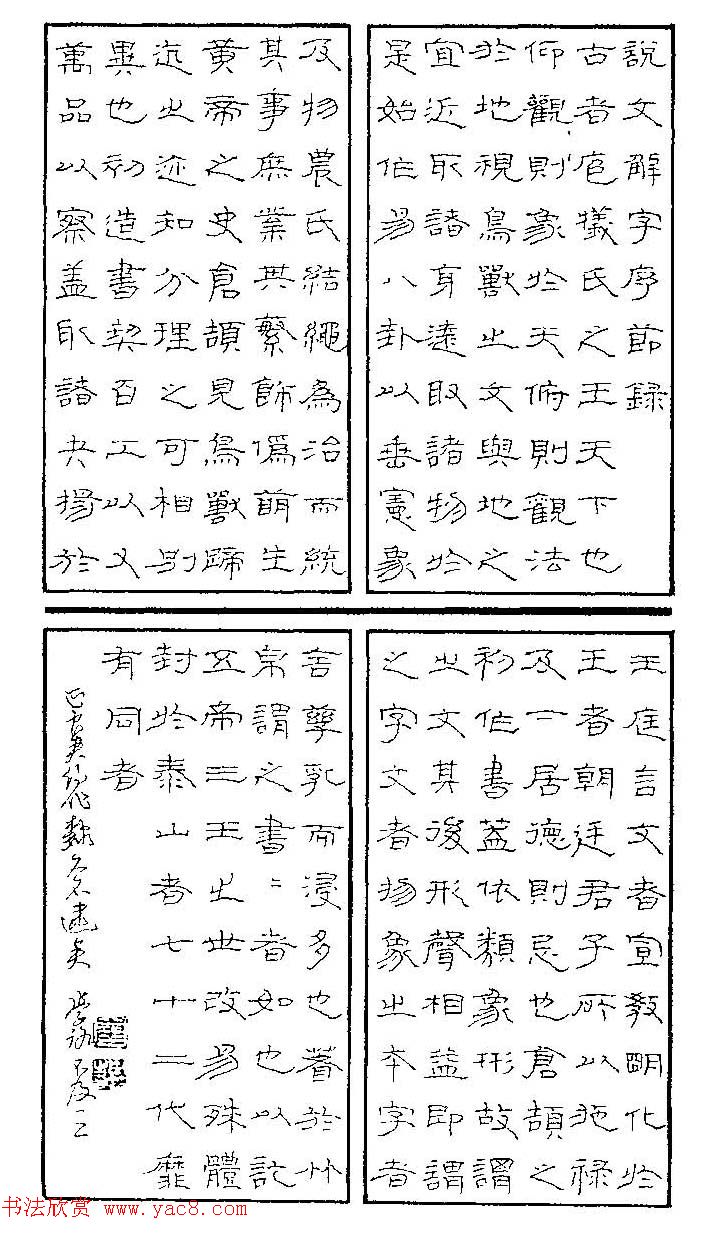 説文解字序節録
古者庖犧氏之王天下也
仰觀則象於天俯則觀法
於地視鳥獸之文與地之
宜近取諸身遠取諸物於
是始作易八卦以垂憲象
及物農氏結繩為治而統
其事庶業其繁飾偽萌生
黄帝之史倉頡見鳥獸蹄
迒之迹知分理之可相別
異也初造書契百工以乂
萬品以察盖取諸夬揚於
王庭言文者宣教明化於
王者朝廷君子所以施禄
及下居德則忌也倉頡之
初作書蓋依類象形故謂
之文其後形聲相益即謂
之字文者物象之本字者
言孳乳而浸多也著於竹
帛謂之書〻者如也以記
五帝三王之世改易殊體
封於泰山者七十二代靡
有同者
书法欣赏 www.yac8.com